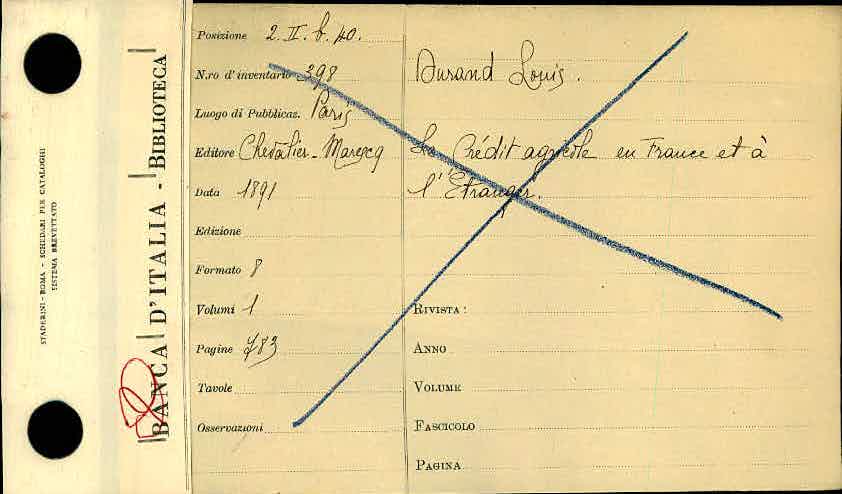 STADERINI - ROMA - SCHEDARI PER CATALOGHI
SISTEMA BREVETTATO
BANCA D'ITALIA - BIBLIOTECA
Posizione 2. II. b. 40.
N.ro d'inventario 398
Luogo di Pubblicaz. Paris
Editore Chevalier-Marescq
Data 1891
Edizione
Formato 8
Volumi 1
Pagine 783
Tavole
Osservazioni
Durand Louis.
Le Crédit agricole en France et à
l'Etranger.
RIVISTA:
ANNO
VOLUME
FASCICOLO
PAGINA